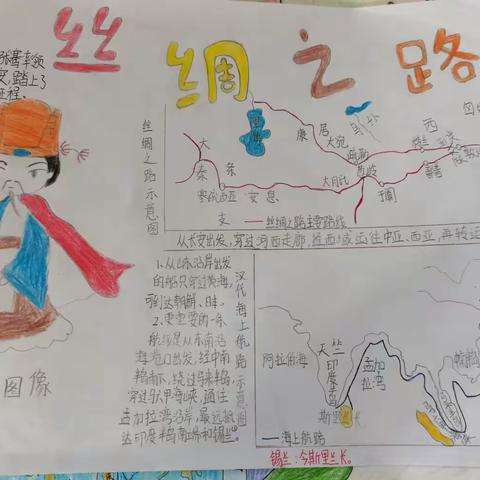 丝绸之路
张骞率领
踏上了
征程、
图像
丝绸之路示意图
大秦
条支
安息
康居
大宛
疏勒
大月氏
于阗
西
丝绸之路主要路线
从长安出发,穿过河西走廊,经西域运往中亚、西亚,再转运
1、从山东沿岸出发
的船只穿过黄海,
可到达朝鲜、日本。
2、更重要的一条
航线是从东南沿
海港口出发,经中南
半岛南下,绕过马来半岛,
穿过马六甲海峡,通往
孟加拉湾沿岸,最远抵
达印度半岛南端和锡兰。
汉代海上航路示意图
阿拉伯海
天竺
印度半岛
孟加拉湾
斯里兰卡
海上航路
锡兰:今斯里兰卡。